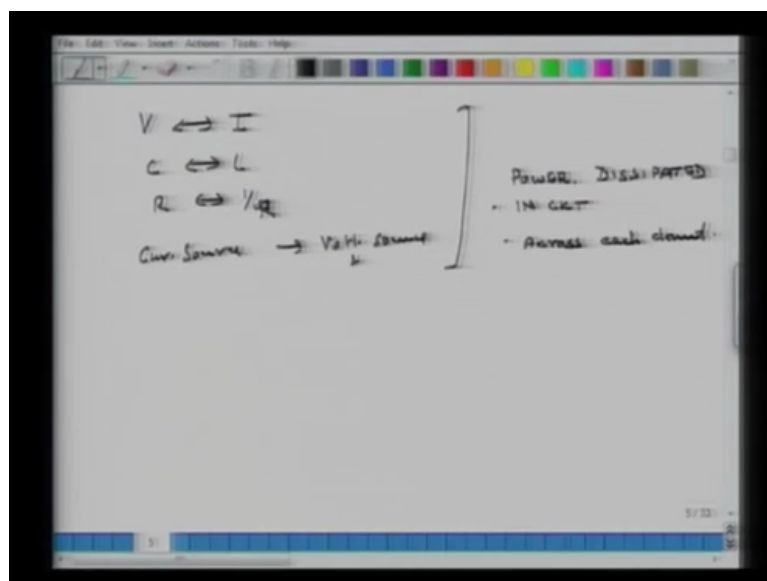 File Edit View Insert Actions Tools Help
V ⟷ I
C ⟷ L
R ⟷ 1/R
Curr. Source → Volt. Source
POWER DISSIPATED
- IN CKT
- Across each element.
5/32
5